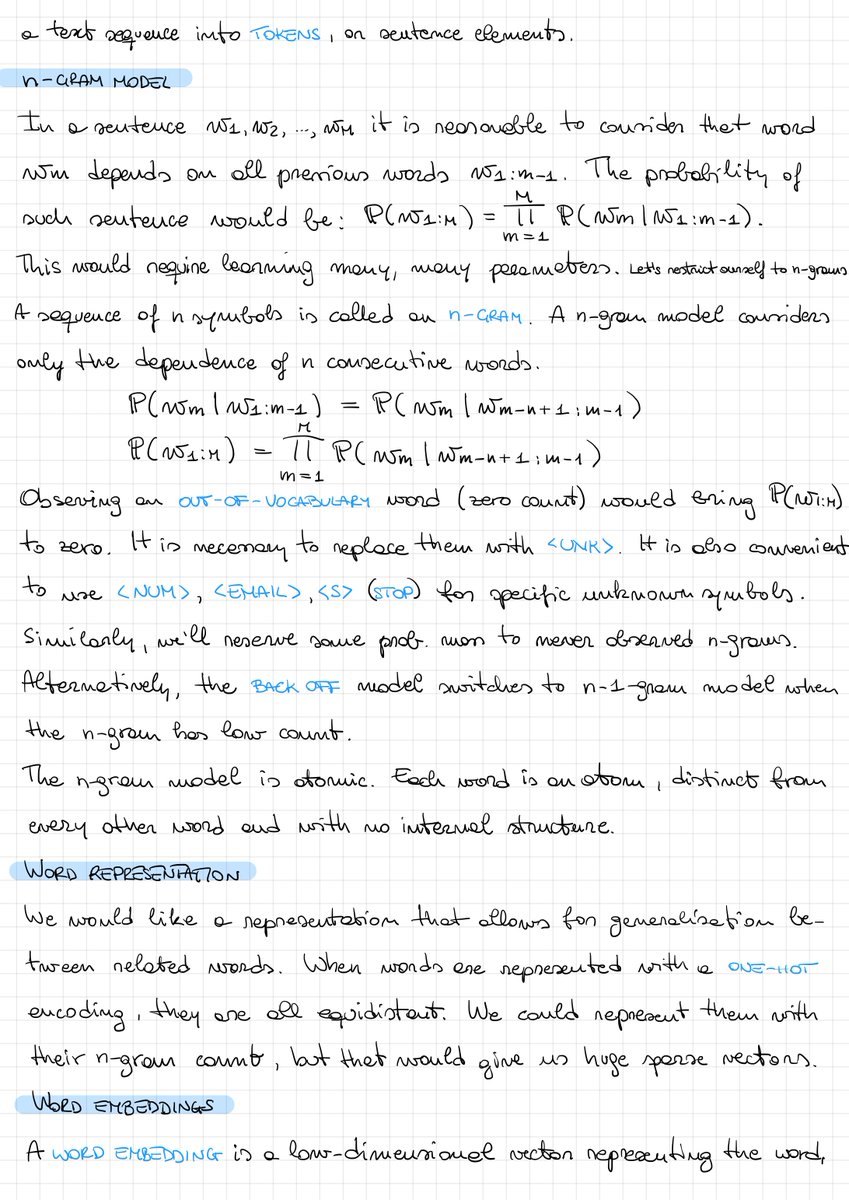 a text sequence into TOKENS, or sentence elements.
n-GRAM MODEL
In a sentence w1, w2, ..., wM it is reasonable to consider that word
wm depends on all previous words w1:m-1. The probability of
such sentence would be: ℙ(w1:M) = ∏_{m=1}^{M} ℙ(wm | w1:m-1).
This would require learning many, many parameters. Let's restrict ourself to n-grams
A sequence of n symbols is called an n-GRAM. A n-gram model considers
only the dependence of n consecutive words.
ℙ(wm | w1:m-1) = ℙ(wm | wm-n+1:m-1)
ℙ(w1:M) = ∏_{m=1}^{M} ℙ(wm | wm-n+1:m-1)
Observing an OUT-OF-VOCABULARY word (zero count) would bring ℙ(w1:M)
to zero. It is necessary to replace them with <UNK>. It is also convenient
to use <NUM>, <EMAIL>, <S> (STOP) for specific unknown symbols.
Similarly, we'll reserve some prob. mass to never observed n-grams.
Alternatively, the BACK OFF model switches to n-1-gram model when
the n-gram has low count.
The n-gram model is atomic. Each word is an atom, distinct from
every other word and with no internal structure.
WORD REPRESENTATION
We would like a representation that allows for generalisation be-
tween related words. When words are represented with a ONE-HOT
encoding, they are all equidistant. We could represent them with
their n-gram count, but that would give us huge sparse vectors.
WORD EMBEDDINGS
A WORD EMBEDDING is a low-dimensional vector representing the word,